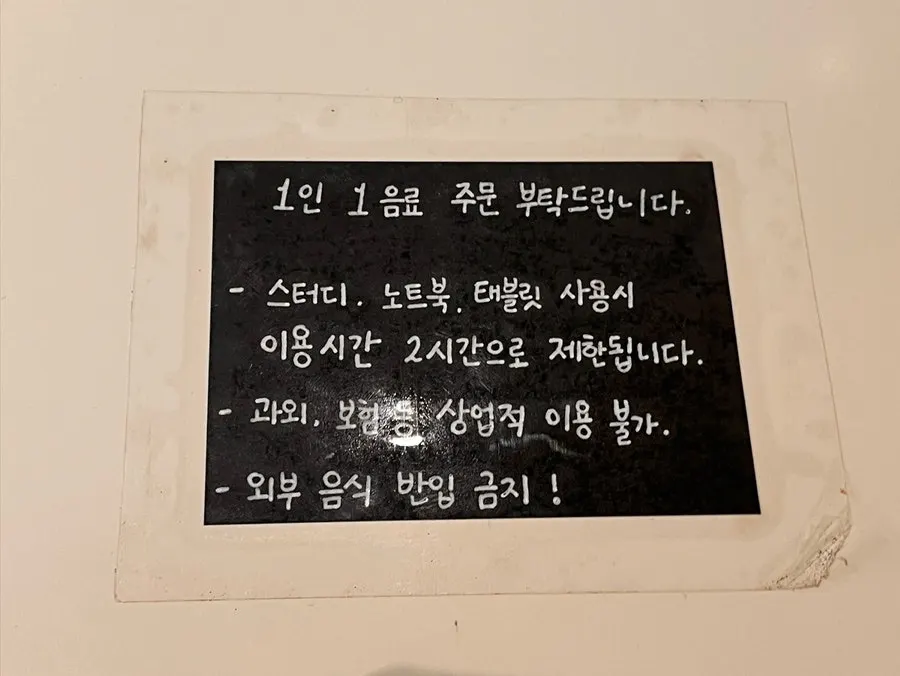 1인 1음료 주문 부탁드립니다.
- 스터디, 노트북, 태블릿 사용시
이용시간 2시간으로 제한됩니다.
- 과외, 보험 등 상업적 이용 불가.
- 외부 음식 반입 금지!